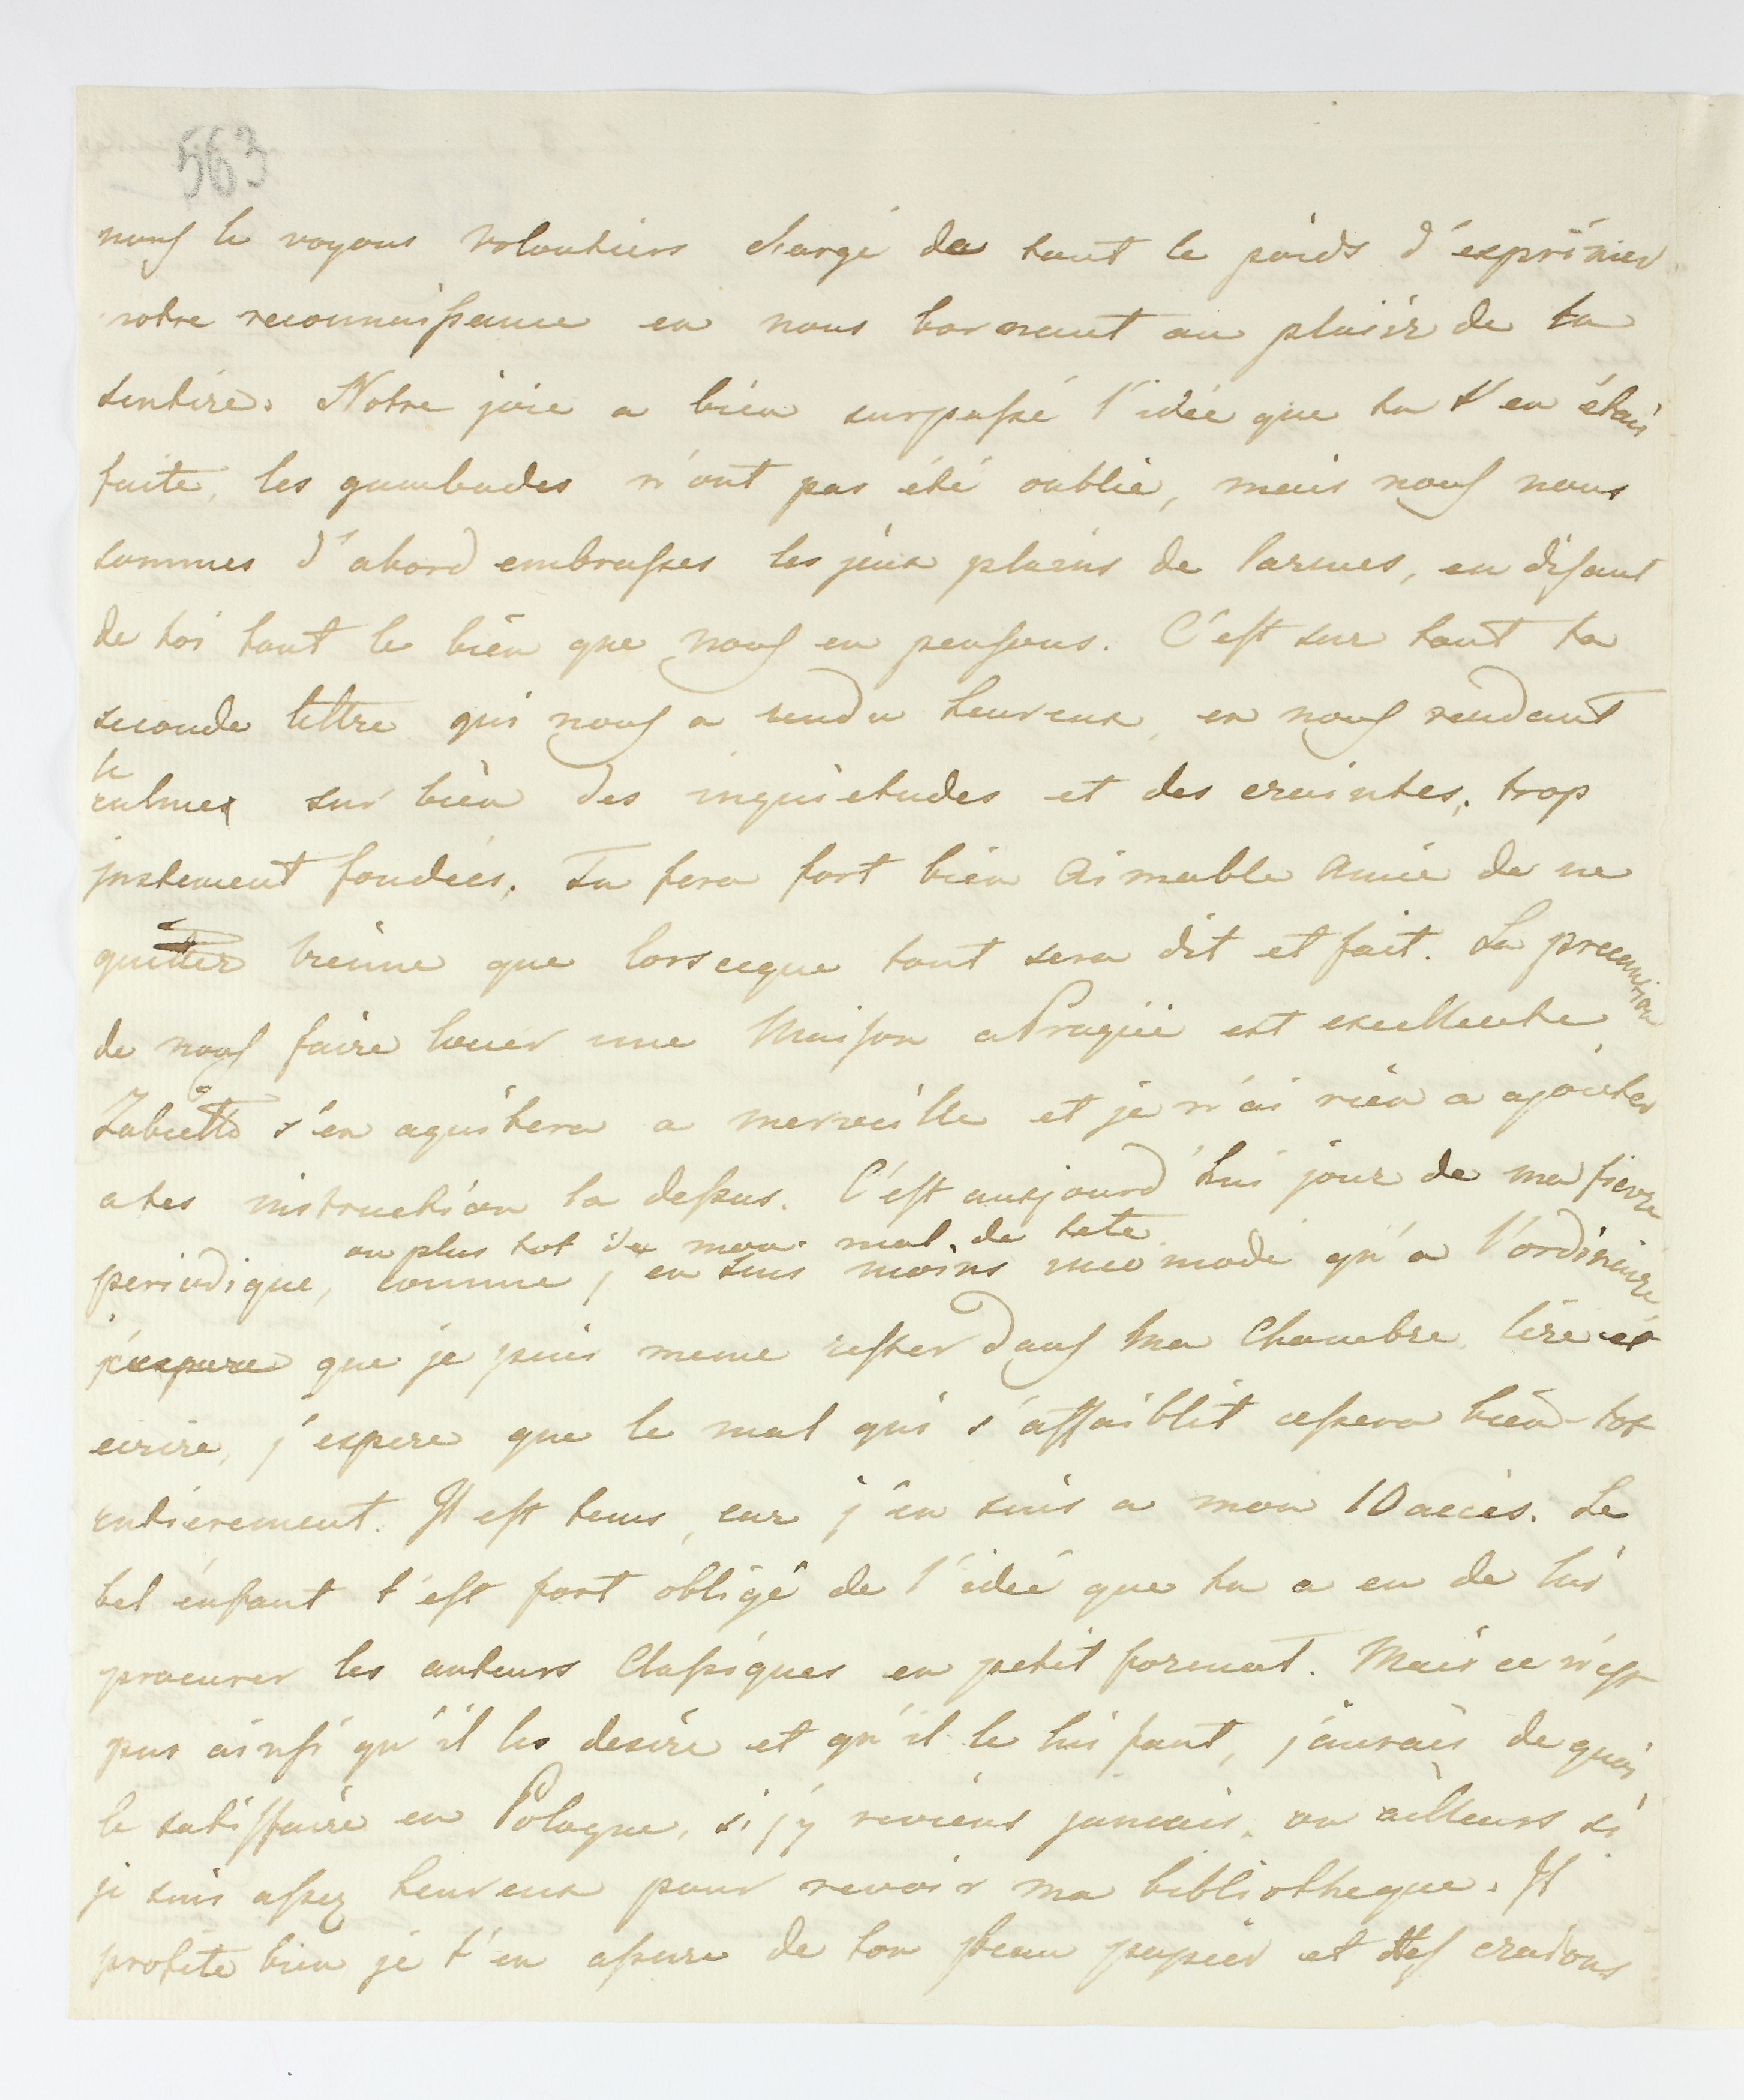 563
nous le voyons volontiers chargé de tout le poids d'exprimer
notre reconnaissance en nous bornant au plaisir de la
sentire. Notre joie a bien surpassé l'idée que tu t'en étais
faite, les gambades n'ont pas été oublié, mais nous nous
sommes d'abord embrasses les jeux pleins de larmes, en disant
de toi tout le bien que nous en pensons. C'est sur tout ta
seconde lettre qui nous a rendu heureux, en nous rendant
le
calme sur bien des inquiétudes et des craintes, trop
justement fondées. Tu fera fort bien Aimable Amie de ne
quitter vienne que lorsceque tout sera dit et fait. La precaution
de nous faire louer une Maison a Prague est excellente
s'en aquitera a merveille et je n'ai rien a ajouter
a tes instruction la dessus. C'est aujourd'hui jour de ma fievre
ou plus tot de mon mal de tete
periodique, comme j'en suis moins incomodé qu'a l'ordinaire,
que je puis meme rester dans ma Chambre, lire et
ecrire, j'espere que le mal qui s'affaiblit cessera bien-tot
entierement. Il est tems, car j'en suis a mon 10 accès. Le
bel enfant t'est fort obligé de l'idée que tu a eu de lui
procurer les auteurs Classiques en petit format. Mais ce n'est
pas ainsi qu'il les desire et qu'il le lui faut, j'aurais de quoi
le satisfaire en Pologne, si j'y reviens jamais, ou ailleurs si
je suis assez heureux pour revoir ma bibliotheque. Il
profite bien je t'en assure de ton beau papier et des craions